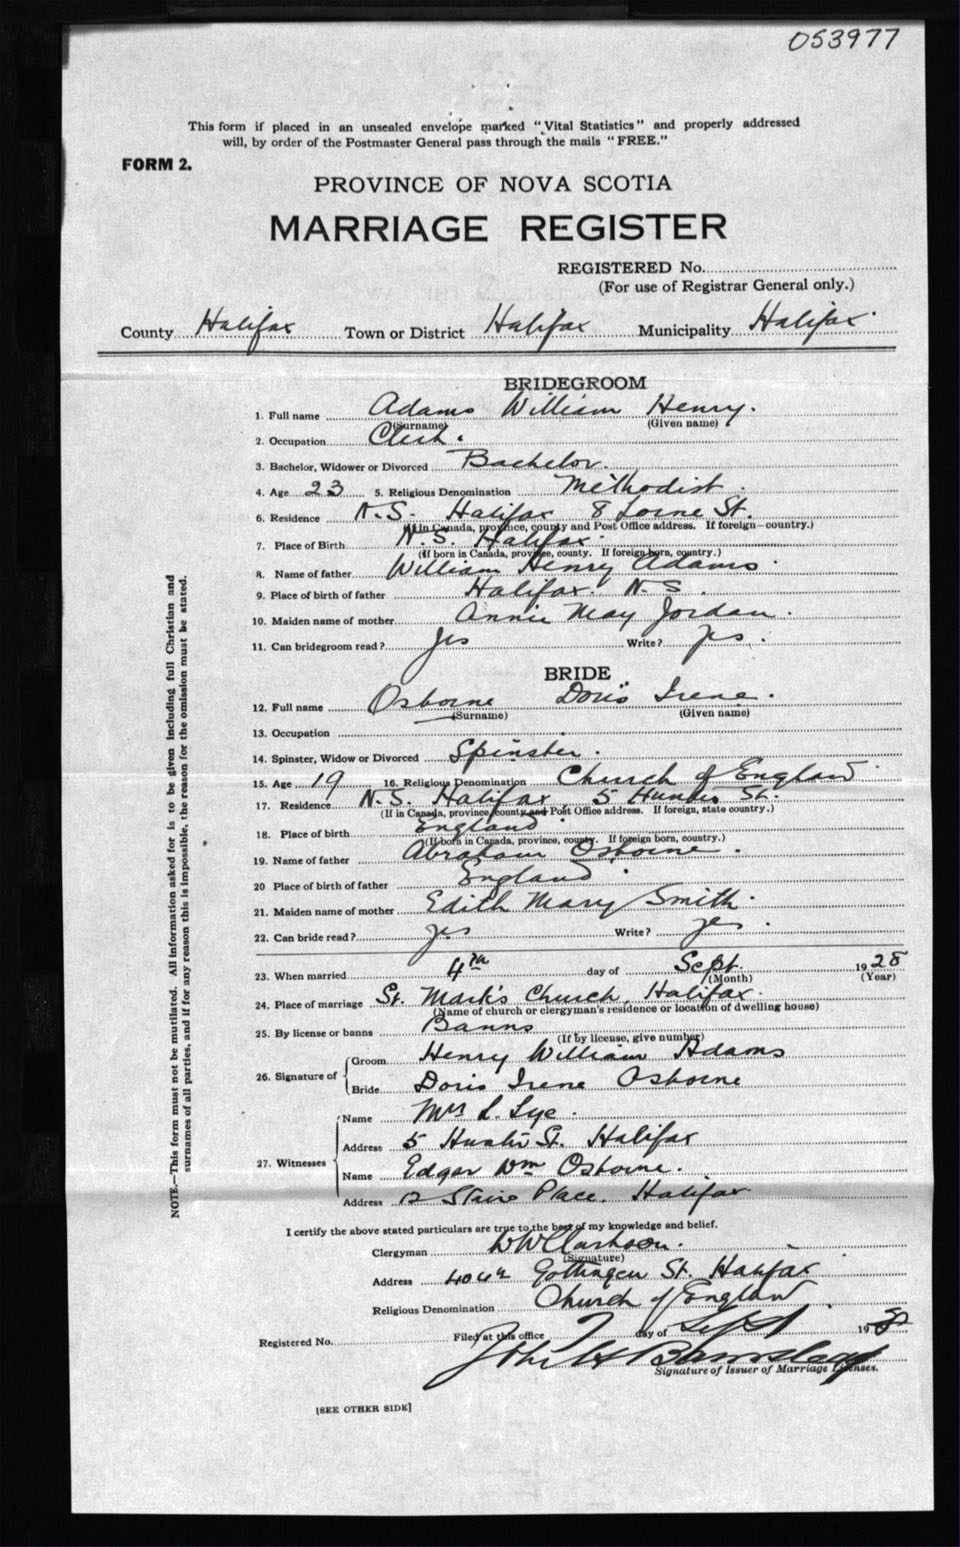 053977
This form if placed in an unsealed envelope marked "Vital Statistics" and properly addressed
will, by order of the Postmaster General pass through the mails "FREE."
FORM 2.
PROVINCE OF NOVA SCOTIA
MARRIAGE REGISTER
REGISTERED No.
(For use of Registrar General only.)
County Halifax Town or District Halifax Municipality Halifax.
BRIDEGROOM
1. Full name Adams William Henry.
(Surname) (Given name)
2. Occupation Clerk.
3. Bachelor, Widower or Divorced Bachelor.
4. Age 23 5. Religious Denomination Methodist.
6. Residence N.S. Halifax 8 Lorne St.
(If in Canada, province, county and Post Office address. If foreign—country.)
7. Place of Birth N.S. Halifax.
(If born in Canada, province, county. If foreign born, country.)
8. Name of father William Henry Adams.
9. Place of birth of father Halifax. N.S.
10. Maiden name of mother Annie May Jordan.
11. Can bridegroom read? yes Write? yes.
BRIDE
12. Full name Osborne Doris Irene.
(Surname) (Given name)
13. Occupation
14. Spinster, Widow or Divorced Spinster.
15. Age 19 16. Religious Denomination Church of England.
17. Residence N.S. Halifax, 5 Hunter St.
(If in Canada, province, county and Post Office address. If foreign, state country.)
18. Place of birth England.
(If born in Canada, province, county. If foreign born, country.)
19. Name of father Abraham Osborne.
20 Place of birth of father England.
21. Maiden name of mother Edith Mary Smith.
22. Can bride read? yes Write? yes.
23. When married 4th day of Sept. 1928
(Month) (Year)
24. Place of marriage St. Mark's Church, Halifax.
(Name of church or clergyman's residence or location of dwelling house)
25. By license or banns Banns
(If by license, give number)
26. Signature of Groom Henry William Adams
Bride Doris Irene Osborne
27. Witnesses Name Mrs L. Lye.
Address 5 Hunter St. Halifax
Name Edgar Wm Osborne.
Address 12 Stairs Place. Halifax
I certify the above stated particulars are true to the best of my knowledge and belief.
Clergyman
(Signature)
Address Gottingen St. Halifax
Religious Denomination Church of England.
Registered No. Filed at this office day of Sept 19
John
Signature of Issuer of Marriage Licenses.
[SEE OTHER SIDE]
NOTE.—This form must not be mutilated. All information asked for is to be given including full Christian and
surnames of all parties, and if for any reason this is impossible, the reason for the omission must be stated.